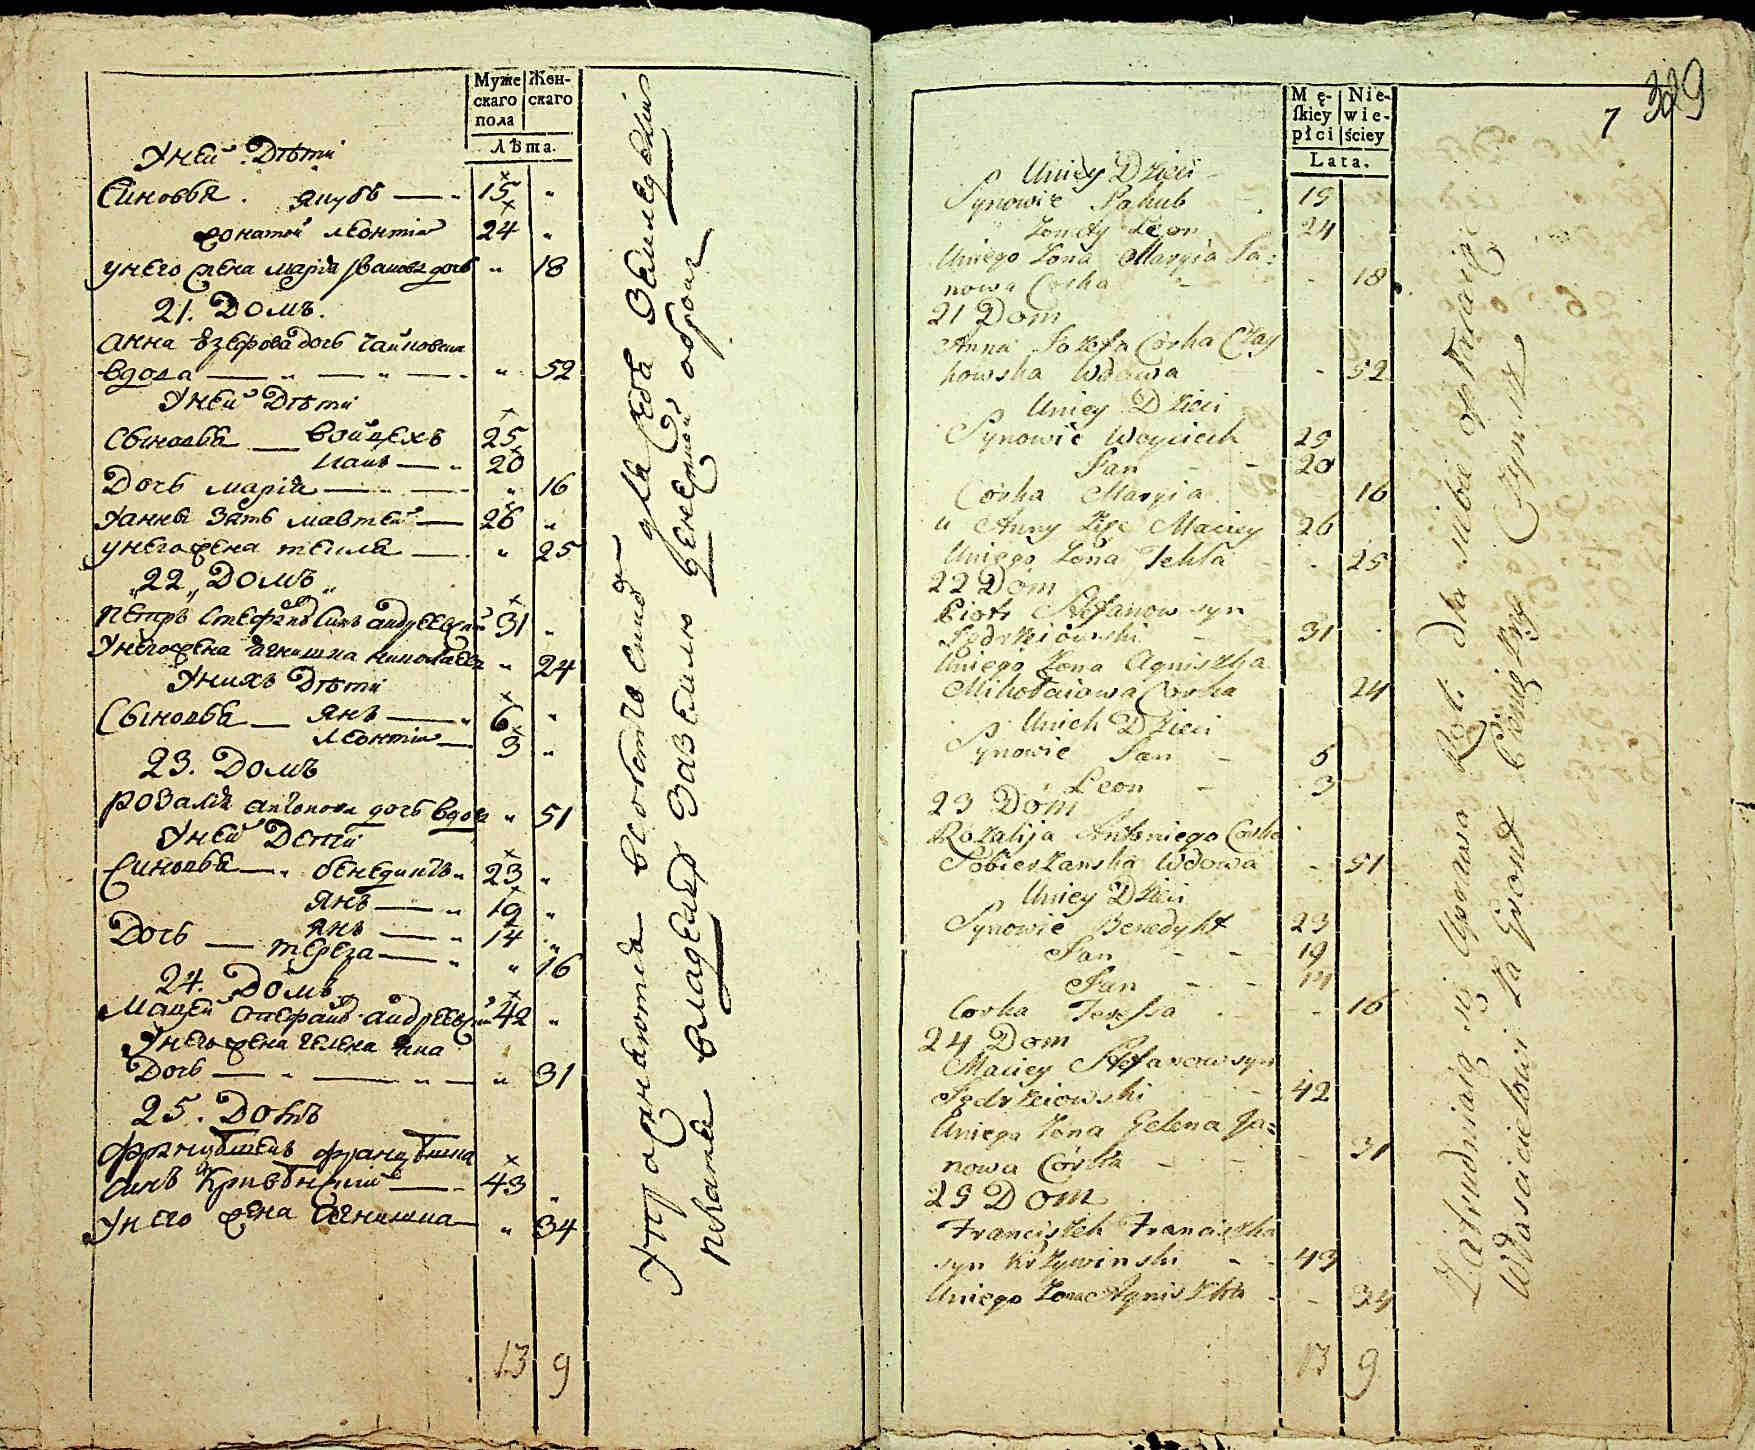 Муже Жен-
скаго скаго
пола
Лѣта.
Уней Дѣти
Синовья. Якубъ 15 "
женатой Леонтий 24 "
унего жена Марія Иванова дочь " 18
21. Домъ.
Анна Езефова дочь Чайковская
вдова " 52
Уней Дѣти
Сыновья Войцехъ 25
Ианъ 20
Дочь Марія " 16
У Анны Зять Мавтей 26 "
унего жена Текля " 25
"22" Домъ "
Петръ Стефановъ Синъ Андреевский 31 "
Унего жена Агнишка Николаева " 24
Унихъ Дѣти
Сыновья Янъ 6 "
Леонтий 3 "
23. Домъ
Розалія Антонова дочь вдова " 51
Уней Дети
Синовья Бенедиктъ 23 "
Янъ 19 "
Янъ 14 "
Дочь Тереза " 16
24. Домъ
Мацей Стефановъ Андреевский 42 "
Унего жена Гелена Яна
Дочь " 31
25. Домъ
Францышекъ Францышка
синъ Крживинский 43 "
Унего жена Агнишка " 34
13 9
Упражняются всобственной для себя Земледелии
владельцу За Землю денежной оброк
Mę- Nie-
skiey wie-
płci ściey
Lata.
7
329
Uniey Dzieci
Synowie Jakub 15
Zonaty Leon 24
Uniego Zona Maryia Ja=
nowa Corka 18
21 Dom
Anna Jozefa Corka Czay
kowska Wdowa 52
Uniey Dzieci
Synowie Woyciech 25
Jan 20
Corka Maryia 16
u Anny Zięc Maciey 26
Uniego Zona Tekla 25
22 Dom
Piotr Stefanow syn
Jędrzeiowski 31
Uniego Zona Agniszka
Mikołaiowa Corka 24
Unich Dzieci
Synowie Jan 6
Leon 3
23 Dom
Rozalija Antoniego Corka
Sobieszanska Wdowa 51
Uniey Dzieci
Synowie Benedykt 23
Jan 19
Jan 14
Corka Teressa 16
24 Dom
Maciey Stefanow syn
Jędrzeiowski 42
Uniego Zona Gelena Ja=
nowa Corka 31
25 Dom
Franciszek Franciszka
syn Krzywinski 43
Uniego Zona Agniszka 34
13 9
Zatrudniaią się Uprawą Roli dla siebie opłacaią
Właścicielowi za Gront Pieniężny Czynsz